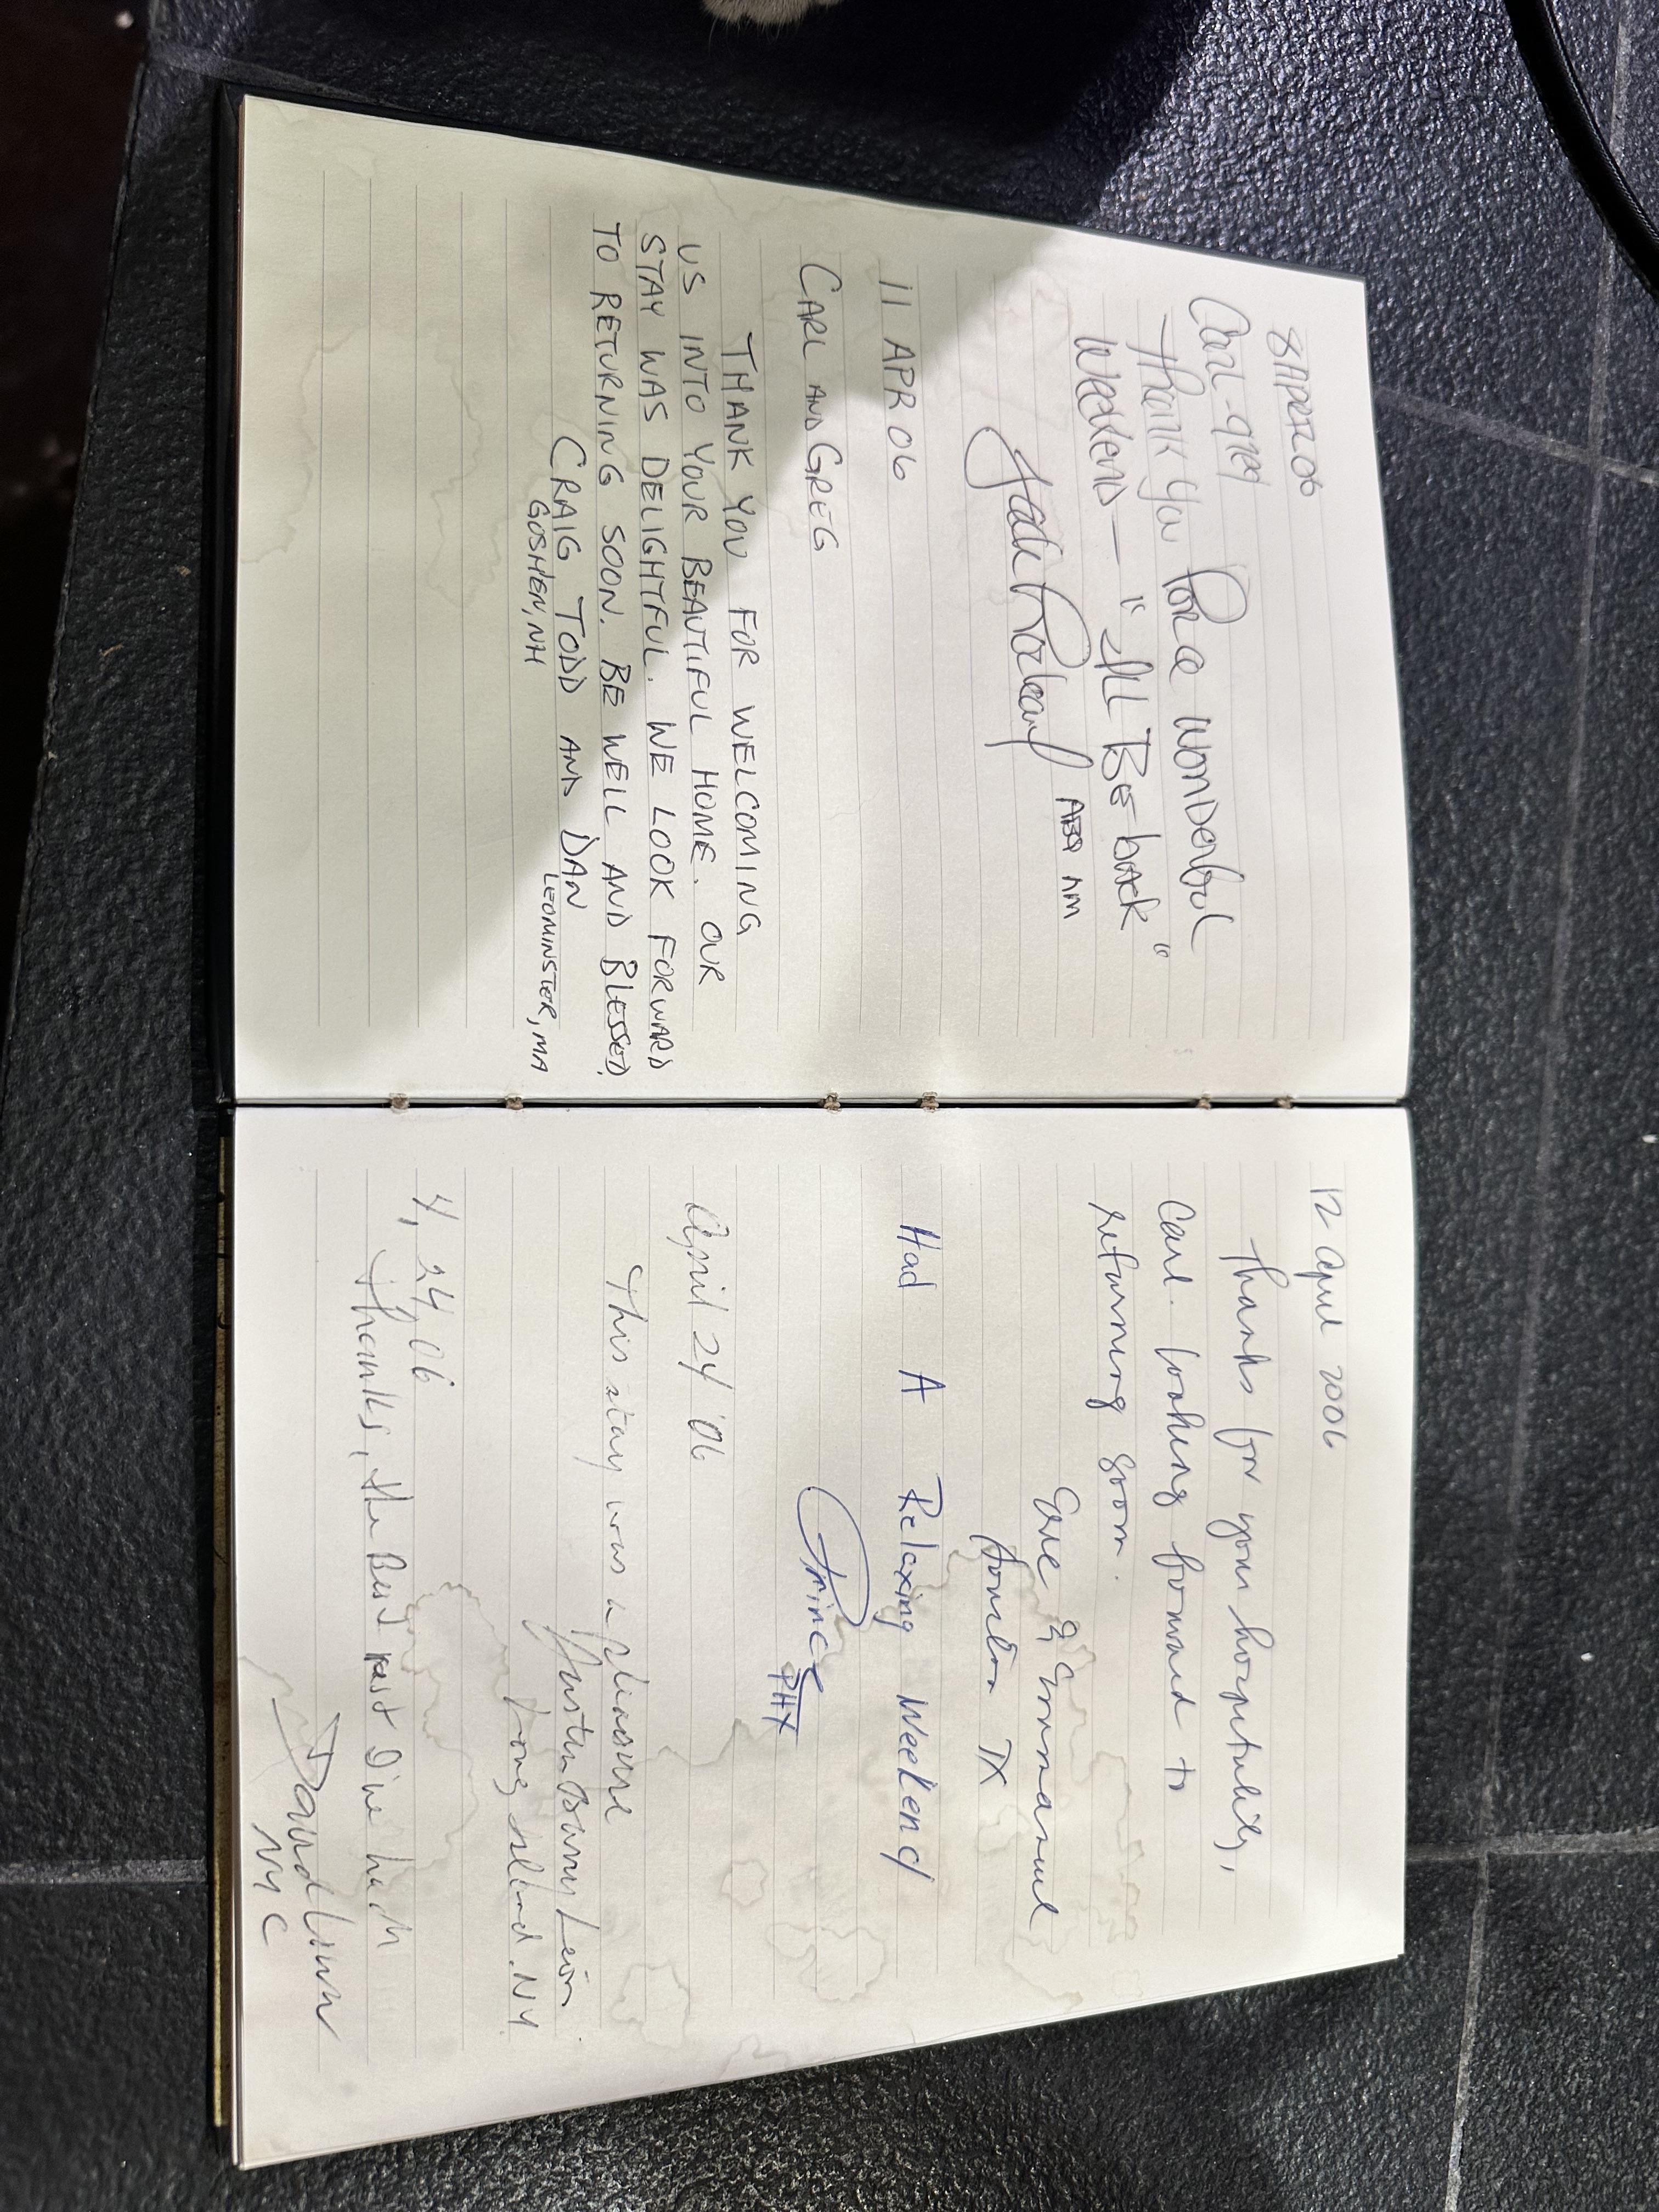 8 APRIL 06
Carl - Greg
Thank you For a wonderful
Weekend — "I'll Be-back"
ABQ NM
11 APR 06
CARL AND GREG
THANK YOU FOR WELCOMING
US INTO YOUR BEAUTIFUL HOME. OUR
STAY WAS DELIGHTFUL. WE LOOK FORWARD
TO RETURNING SOON. BE WELL AND BLESSED.
CRAIG TODD AND DAN
GOSHEN, NH LEOMINSTER, MA
12 April 2006
Thanks for your hospitality,
Carl. Looking forward to
returning soon.
& Emmanuel
Houston TX
Had A Relaxing Weekend
Prince
PHX
April 24 '06
This stay was a pleasure
Long Island. NY
4, 24, 06
Thanks, the Best rest I've had
David
NYC